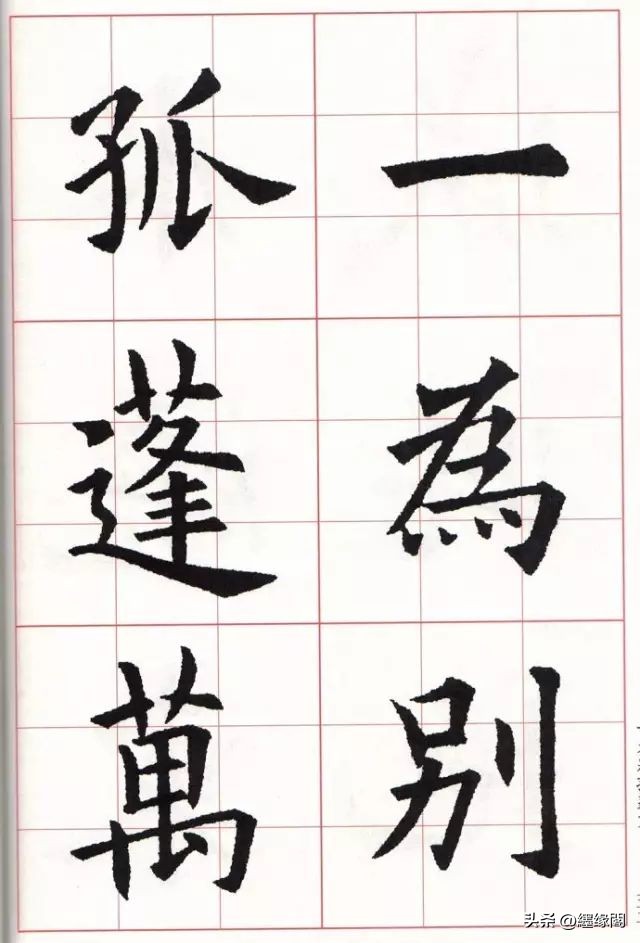 一為别
孤蓬萬
头条 @纆缘閣